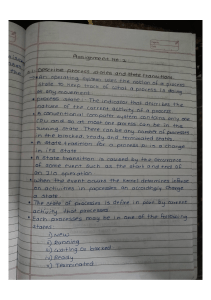 Assignment No. 2
Describe process states and state transitions.
An operating system uses the notion of a process
state to keep track of what a process is doing
at any moment.
process state : The indicator that describes the
nature of the current activity of a process
A conventional computer system contains only one
CPU and so at most one process can be in the
running state. There can be any number of processes
in the blocked, ready and terminated states.
A State transition for a process is a change
in its state
A State transition is caused by the occurrence
of some event such as the start and end of
an I/o operation
When the event occurs the kernel determines
on activities in processes an accordingly change
a state
The state of process is define in part by current
activity that processes
Each processes may be in one of the following
states
i) New
ii) Running
iii) Waiting or blocked
iv) Ready
v) Terminated